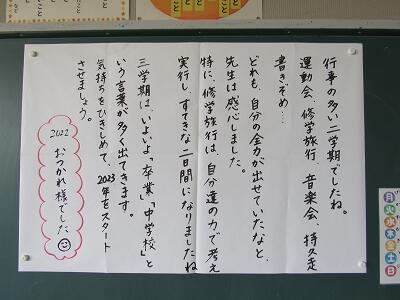 行事の多い二学期でしたね。
運動会、修学旅行、音楽会、持久走
書きぞめ…
どれも、自分の全力が出せていたなと、
先生は感心しました。
特に、修学旅行は、自分達の力で考え
実行し、すてきな二日間になりましたね
三学期は、いよいよ「卒業」「中学校」と
いう言葉が多く出てきます。
気持ちをひきしめて、2023年をスタート
させましょう。
2022
おつかれ様でした
月
火
水
木
金
土
日